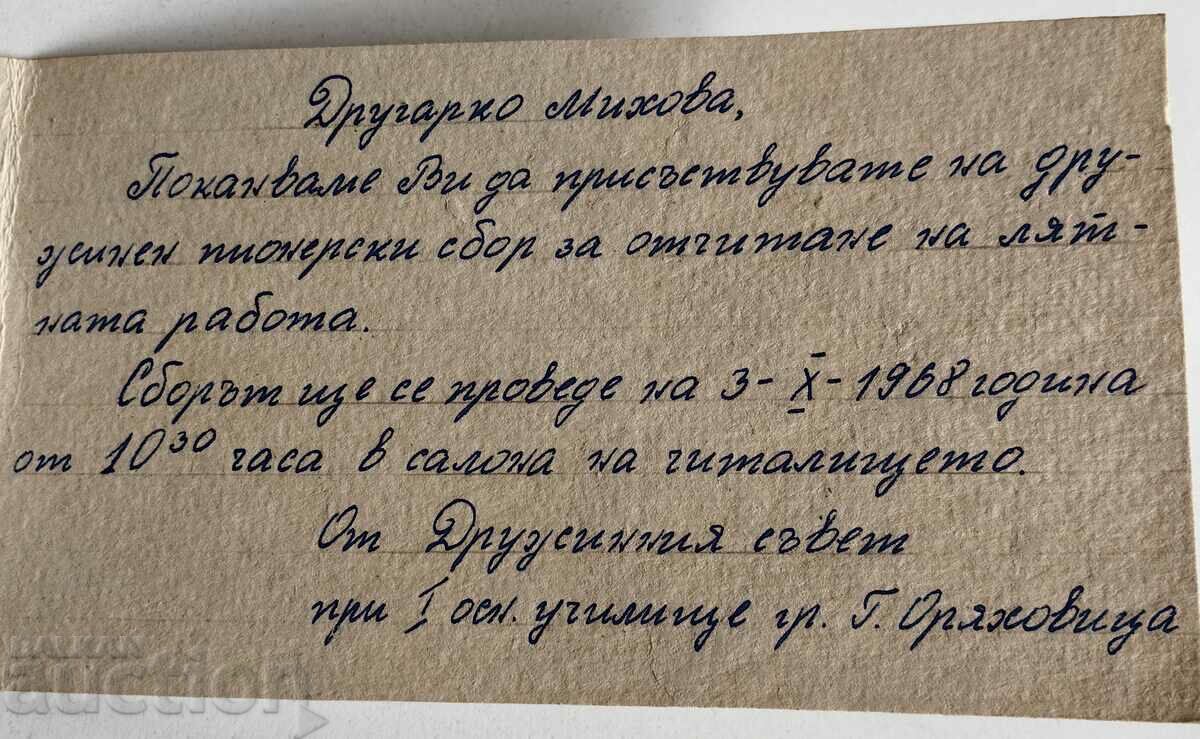 Другарко Михова,
Поканваме Ви да присъствувате на дру-
жинен пионерски сбор за отчитане на лят-
ната работа.
Сборът ще се проведе на 3-X-1968 година
от 10³⁰ часа в салона на читалището.
От Дружинния съвет
при I осн. училище гр. Г. Оряховица
BALKAN
auction